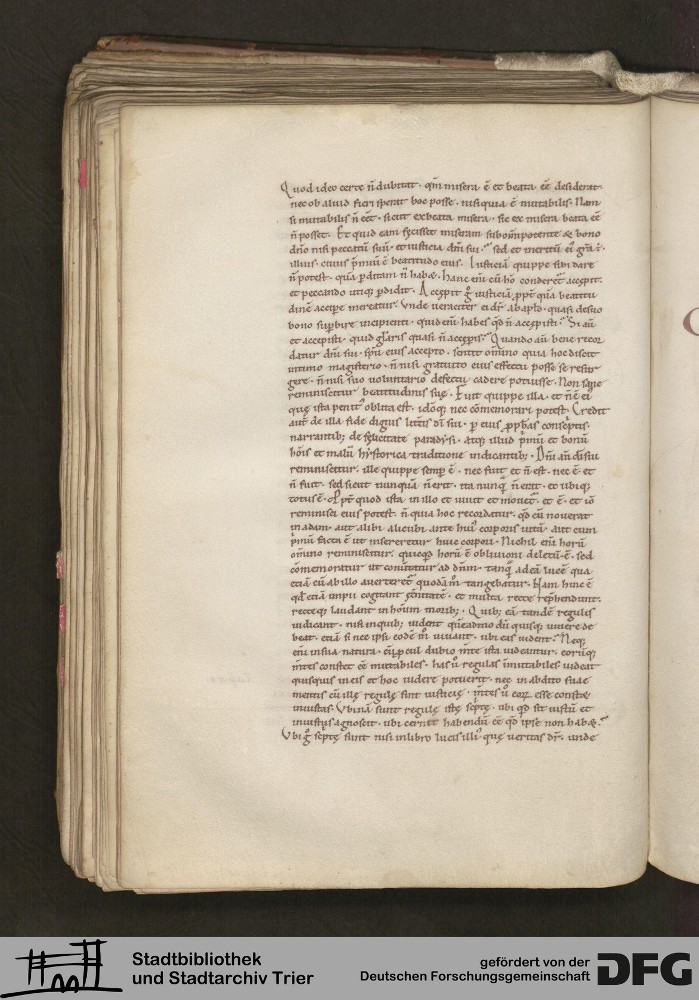 Quod ideo certe ñ dubitat · qm̃ misera ẽ et beata eẽ desiderat·
nec ob aliud fieri sperat hoc posse · nisi quia ẽ mutabilis· Nam
si mutabilis ñ eẽt · sicut ex beata misera · sic ex misera beata eẽ
ñ posset· Et quid eam fecisset miseram sub omnipotente & bono
dño nisi peccatũ suũ · et iusticia dñi sui · sed et meritũ
illius · cuius p̃miũ ẽ beatitudo eius· Iusticiã quippe sibi dare
ñ potest · quã p̱ditam ñ habę· Hanc eni cũ hõ conderet̃ accepit·
et peccando utiq; p̱didit · Accepit g̊ iusticiã ppt̃ quã beatitu
dinẽ accipe mereatur· Vnde veraciter ei dr̃ ab apl̃o · quasi de suo
bono sup̱bire incipienti · quid eni habes qd̃ ñ accepisti · Si aũt
et accepisti · quid glãris quasi ñ acceperis· Quando aũ bene recor
datur dñi sui · spũ eius accepto · sentit om̃ino quia hoc discit
intimo magisterio · ñ nisi gratuito eius effectu posse se resur
gere · ñ nisi suo voluntario defectu cadere potuisse · Non sane
reminiscitur beatitudinis suę · Fuit quippe illa · et ñ ẽ ei
quę ista penit᷒ oblita est · idoq; nec cõmemorari potest· Credit
aut̃ de illa fide dignis litt̃is dĩ sui · p̱ eius p̱ph̃as conscriptis·
narrantib; de felicitate paradysi · atq; illud p̃mũ et bonũ
hõis et malũ hystorica traditione indicantib; · Dñi aũ di sui
reminiscitur· ille quippe semp̱ ẽ · nec fuit et ñ est · nec ẽ et
ñ fuit · sed sicut nunquã ñ erit · ita nunq̃ ñ erat · et ubiq;
totus ẽ · Ppt̃ quod ista in illo et vivit et movet̃ · et ẽ · et iõ
reminisci eius potest· ñ quia hoc recordatur · qd̃ eũ noverat
in adam · aut alibi alicubi ante hui᷒ corporis vitã · aut cum
p̃mũ facta ẽ ut insereretur huic corpori · Nichil eni horũ
om̃ino reminiscitur· quicqd̃ horũ ẽ oblivioni deletũ · ẽ · sed
cõmemoratur ut convertatur ad dñm · tanq̃ ad eã lucẽ qua
etiã cũ ab illo averteret̃ quodã m̊ tangebatur · Nam hinc ẽ
qd̃ etiã impii cogitant et̃nitatẽ · et multa recte rep̱hendunt·
recteq; laudant in hominũ morib; · Quib; eã tandẽ regulis
iudicant · nisi in quib; vident quẽadmodũ quisq; vivere de
beat · etiã si nec ipsi eodẽ m̊ vivant · ubi eas vident · Neq;
eni in sua natura · cũ p̱cul dubio m̃te ista videantur · eorũq;
m̃tes constet eẽ mutabiles · has ů regulas ĩmutabiles videat
quisquis in eis et hoc videre potuerit · nec in abitu suae
mentis cũ illę regulę sint iusticię · m̃tes ů eorũ esse constet
iniustas· Vbinã sunt regulę istę scptę · ubi qd̃ sit iustũ et
iniustũ agnoscit · ubi cernit habendũ eẽ qd̃ ipse non habę·
Vbi g̊ scptę sunt nisi in libro lucis illi᷒ quę veritas dr̃· unde
Stadtbibliothek
und Stadtarchiv Trier
gefördert von der
Deutschen Forschungsgemeinschaft
DFG